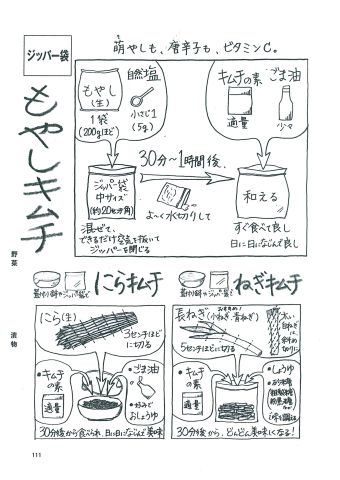 萌やしも、唐辛子も、ビタミンC。
ジッパー袋
もやしキムチ
もやし
(生)
1袋
(200gほど)
自然塩
小さじ1
(5g)
キムチの素
適量
ごま油
少々
30分〜1時間後
ジッパー袋
中サイズ
(約20センチ角)
混ぜて、
できるだけ空気を抜いて
ジッパーを閉じる
よ〜く水切りして
和える
すぐ食べて良し
日に日にならんで良し
野菜
漬物
にらキムチ
にら(生)
3センチほど
に切る
キムチ
の素
適量
ごま油
好みで
おしょうゆ
30分後から食べられ、日に日にならんで美味
ねぎキムチ
長ねぎ
おすすめ!
(小ねぎ・青ねぎ)
5センチほどに切る
太い
白ねぎは
斜め
切りに
キムチ
の素
適量
しょうゆ
30分後から、どんどん美味しくなる!
111